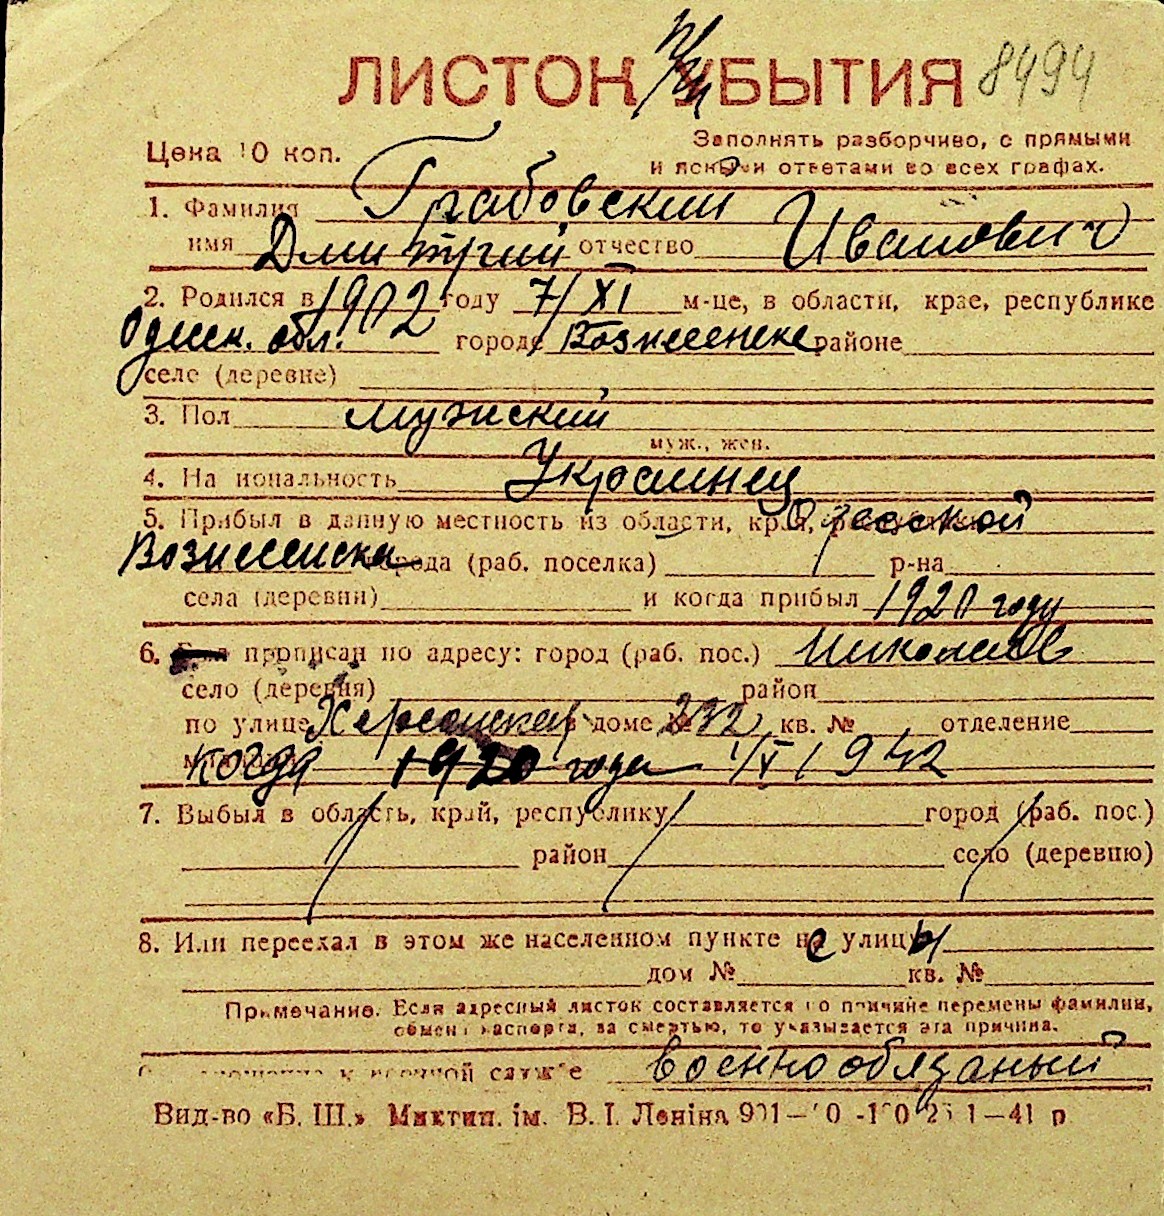 ЛИСТОК УБЫТИЯ 8494
Цена 10 коп.
Заполнять разборчиво, с прямыми
и ясными ответами во всех графах.
1. Фамилия Грабовский
имя Дмитрий отчество Иванович
2. Родился в 1902 году 7/XI м-це, в области, крае, республике
Одесск. обл. городе Вознесенске районе
селе (деревне)
3. Пол мужский
муж., жен.
4. Национальность Украинец
5. Прибыл в данную местность из области, края, Одесской
Вознесенска города (раб. поселка) р-на
села (деревни) и когда прибыл 1920 году
6. прописан по адресу: город (раб. пос.) Николаев
село (деревня) район
по улице Херсонская в доме № 232 кв. № отделение
когда 1920 года 1/V 1942
7. Выбыл в область, край, республику город (раб. пос.)
район село (деревню)
8. Или переехал в этом же населенном пункте с улицы
дом № кв. №
Примечание. Если адресный листок составляется по причине перемены фамилии,
обмена паспорта, за смертью, то указывается эта причина.
к военной службе военнообязаный
Вид-во «Б. Ш.» Миктип. ім. В. І. Леніна